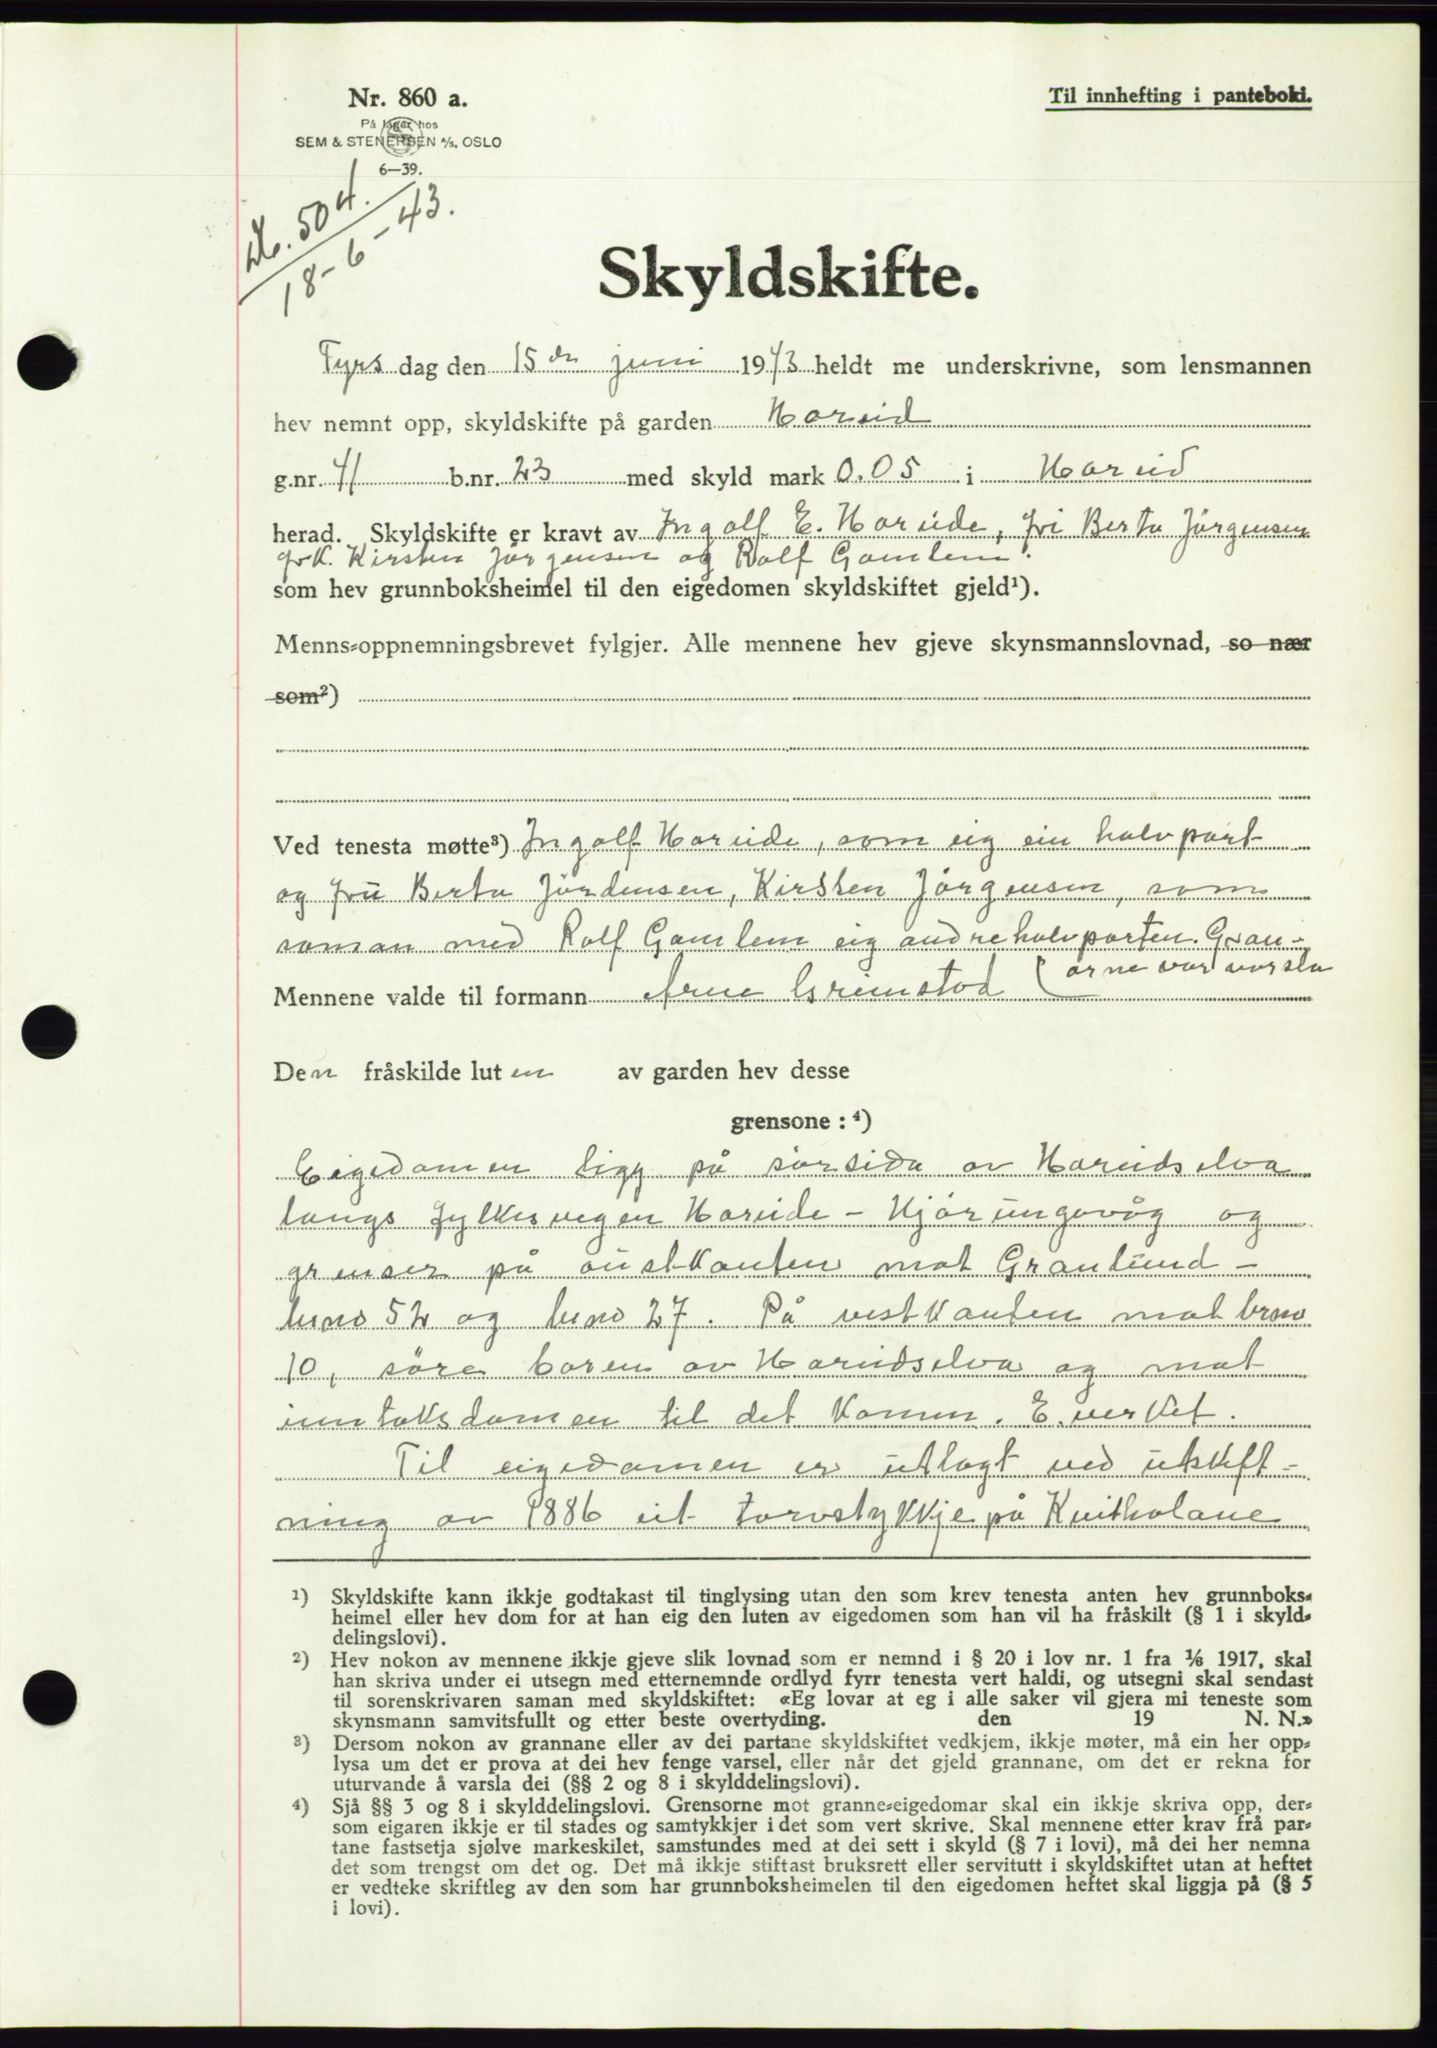 Nr. 860 a.
Til innhefting i panteboki.
På lager hos
SEM & STENERSEN A/S, OSLO
6—39.
No. 504.
18-6-43.
Skyldskifte.
Tyrs dag den 15 dn juni 1943 heldt me underskrivne, som lensmannen
hev nemnt opp, skyldskifte på garden Hareid
g.nr. 41 b.nr. 23 med skyld mark 0.05 i Hareid
herad. Skyldskifte er kravt av Ingolf E. Hareide, fri Berta Jörgensen
frk. Kirsten Jörgensen og Rolf Gamlem.
som hev grunnboksheimel til den eigedomen skyldskiftet gjeld¹).
Menns-oppnemningsbrevet fylgjer. Alle mennene hev gjeve skynsmannslovnad, so nær
som²)
Ved tenesta møtte³) Ingolf Hareide, som eig ein halvpart
og frü Berta Jördensen, Kirsten Jörgensen, som
saman med Rolf Gamlem eig andre halvparten. Gran-
arne var varsla
Mennene valde til formann Arne Grimstad
Den fråskilde luten av garden hev desse
grensone : ⁴)
Eigedomen ligg på sörsida av Hareidselva
langs fylkesvegen Hareide – Hjörungavåg og
grenser på aust-kanten mot Granlund –
bruno 52 og bruno 27. På vestkanten mot bruno
10, söre baren av Hareidselva og mot
inntaksdamen til det komm. E.verket.
Til eigedomen er utlagt ved utskift-
ning av 1886 eit torvstykkje på Kvitholane
¹) Skyldskifte kann ikkje godtakast til tinglysing utan den som krev tenesta anten hev grunnboks-
heimel eller hev dom for at han eig den luten av eigedomen som han vil ha fråskilt (§ 1 i skyld-
delingslovi).
²) Hev nokon av mennene ikkje gjeve slik lovnad som er nemnd i § 20 i lov nr. 1 fra 1/6 1917, skal
han skriva under ei utsegn med etternemnde ordlyd fyrr tenesta vert haldi, og utsegni skal sendast
til sorenskrivaren saman med skyldskiftet: «Eg lovar at eg i alle saker vil gjera mi teneste som
skynsmann samvitsfullt og etter beste overtyding. den 19 N. N.»
³) Dersom nokon av grannane eller av dei partane skyldskiftet vedkjem, ikkje møter, må ein her opp-
lysa um det er prova at dei hev fenge varsel, eller når det gjeld grannane, om det er rekna for
uturvande å varsla dei (§§ 2 og 8 i skylddelingslovi).
⁴) Sjå §§ 3 og 8 i skylddelingslovi. Grensorne mot granne-eigedomar skal ein ikkje skriva opp, der-
som eigaren ikkje er til stades og samtykkjer i det som vert skrive. Skal mennene etter krav frå par-
tane fastsetja sjølve markeskilet, samstundes med at dei sett i skyld (§ 7 i lovi), må dei her nemna
det som trengst om det og. Det må ikkje stiftast bruksrett eller servitutt i skyldskiftet utan at heftet
er vedteke skriftleg av den som har grunnboksheimelen til den eigedomen heftet skal liggja på (§ 5
i lovi).